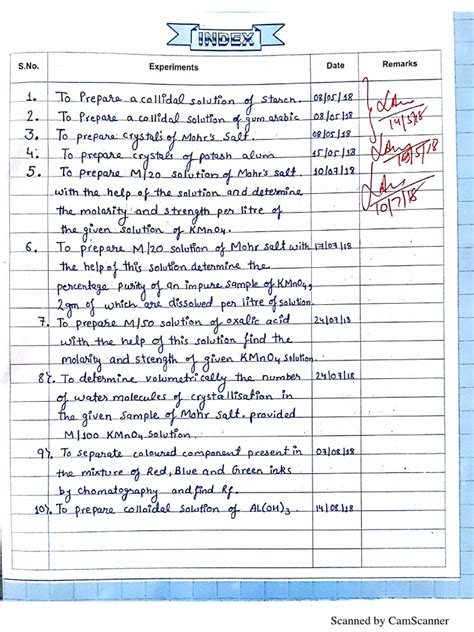 INDEX
S.No. Experiments Date Remarks
1. To Prepare a collidal solution of starch. 08/05/18
2. To Prepare a collidal solution of gum arabic 08/05/18
3. To prepare crystals of Mohr's Salt. 08/05/18
14/5/18
4. To prepare crystals of potash alum 15/05/18
5. To prepare M/20 solution of Mohr's salt 10/07/18
with the help of the solution and determine
the molarity and strength per litre of
10/7/18
the given solution of KMnO4.
6. To prepare M/20 solution of Mohr salt with 17/07/18
the help of this solution determine the
percentage purity of an impure sample of KMnO4,
2gm of which are dissolved per litre of solution.
7. To prepare M/50 solution of oxalic acid 24/07/18
with the help of this solution find the
molarity and strength of given KMnO4 solution.
8. To determine volumetrically the number 24/07/18
of water molecules of crystallisation in
the given sample of Mohr salt. provided
M/100 KMnO4 solution.
9. To separate coloured component present in 07/08/18
the mixture of Red, Blue and Green inks
by chomatography and find Rf.
10. To prepare colloidal solution of Al(OH)3. 14/08/18
Scanned by CamScanner